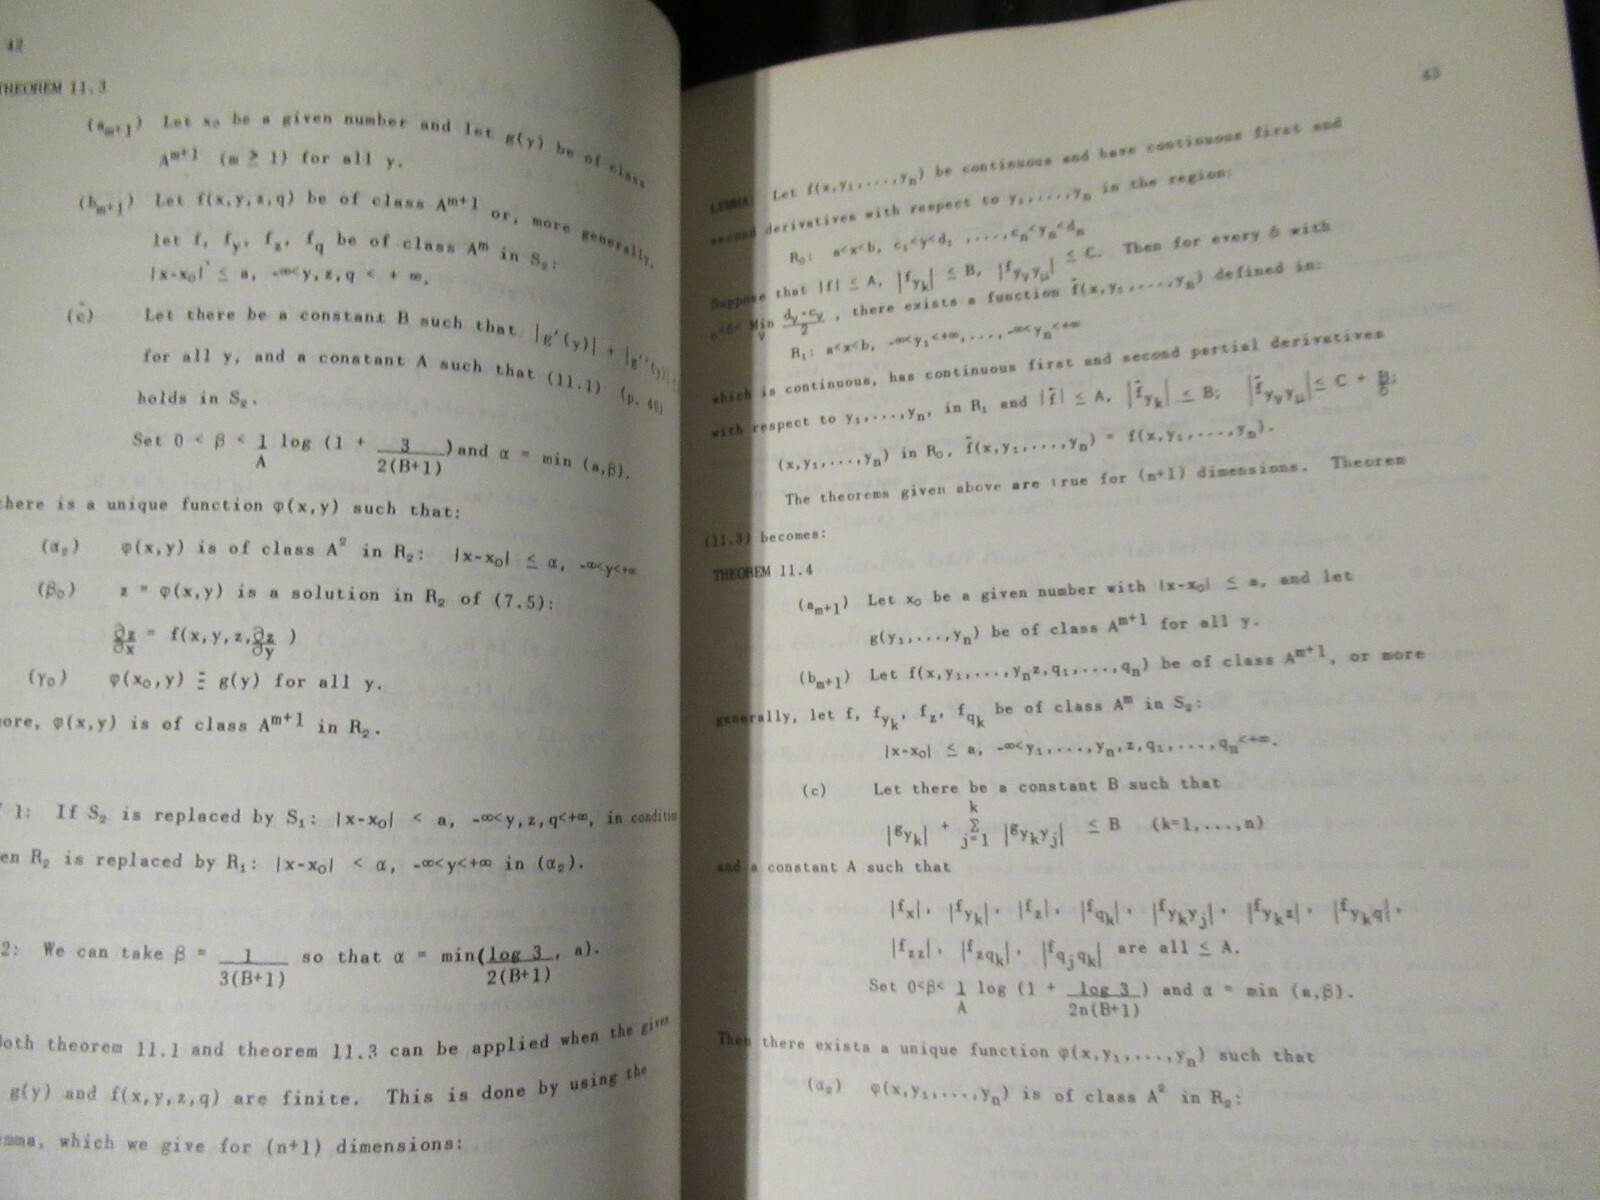 42
THEOREM 11.3
(a_{m+1}) Let x₀ be a given number and let g(y) be of class
A^{m+1} (m ≥ 1) for all y.
(b_{m+1}) Let f(x,y,z,q) be of class A^{m+1} or, more generally,
let f, f_y, f_z, f_q be of class A^m in S₂:
|x-x₀| ≤ a, -∞<y,z,q < + ∞.
(c) Let there be a constant B such that |g'(y)| + |g''(y)|
for all y, and a constant A such that (11.1) (p. 40)
holds in S₂.
Set 0 < β < 1/A log (1 + 3/2(B+1)) and α = min (a,β).
there is a unique function φ(x,y) such that:
(α₂) φ(x,y) is of class A² in R₂: |x-x₀| ≤ α, -∞<y<+∞
(β₀) z = φ(x,y) is a solution in R₂ of (7.5):
∂z/∂x = f(x,y,z,∂z/∂y )
(γ₀) φ(x₀,y) ≡ g(y) for all y.
ore, φ(x,y) is of class A^{m+1} in R₂.
1: If S₂ is replaced by S₁: |x-x₀| < a, -∞<y,z,q<+∞, in condition
en R₂ is replaced by R₁: |x-x₀| < α, -∞<y<+∞ in (α₂).
2: We can take β = 1/3(B+1) so that α = min(log 3/2(B+1), a).
Both theorem 11.1 and theorem 11.3 can be applied when the given
g(y) and f(x,y,z,q) are finite. This is done by using the
emma, which we give for (n+1) dimensions:
43
LEMMA: Let f(x,y₁,...,y_n) be continuous and have continuous first and
second derivatives with respect to y₁,...,y_n in the region:
R₀: a<x<b, c₁<y<d₁ ,...,c_n<y_n<d_n
Suppose that |f| ≤ A, |f_{y_k}| ≤ B, |f_{y_νy_μ}| ≤ C. Then for every δ with
o<δ< Min_ν (d_ν-c_ν)/2, there exists a function f̄(x,y₁,...,y_n) defined in:
R₁: a<x<b, -∞<y₁<+∞,...,-∞<y_n<+∞
which is continuous, has continuous first and second partial derivatives
with respect to y₁,...,y_n, in R₁ and |f̄| ≤ A, |f̄_{y_k}| ≤ B; |f̄_{y_νy_μ}| ≤ C + B/δ;
(x,y₁,...,y_n) in R₀, f̄(x,y₁,...,y_n) = f(x,y₁,...,y_n).
The theorems given above are true for (n+1) dimensions. Theorem
(11.3) becomes:
THEOREM 11.4
(a_{m+1}) Let x₀ be a given number with |x-x₀| ≤ a, and let
g(y₁,...,y_n) be of class A^{m+1} for all y.
(b_{m+1}) Let f(x,y₁,...,y_nz,q₁,...,q_n) be of class A^{m+1}, or more
generally, let f, f_{y_k}, f_z, f_{q_k} be of class A^m in S₂:
|x-x₀| ≤ a, -∞<y₁,...,y_n,z,q₁,...,q_n<+∞.
(c) Let there be a constant B such that
|g_{y_k}| + Σ_{j=1}^{k} |g_{y_ky_j}| ≤ B (k=1,...,n)
and a constant A such that
|f_x|, |f_{y_k}|, |f_z|, |f_{q_k}|, |f_{y_ky_j}|, |f_{y_kz}|, |f_{y_kq}|,
|f_{zz}|, |f_{zq_k}|, |f_{q_jq_k}| are all ≤ A.
Set 0<β< 1/A log (1 + log 3/2n(B+1)) and α = min (a,β).
Then there exists a unique function φ(x,y₁,...,y_n) such that
(α₂) φ(x,y₁,...,y_n) is of class A² in R₂: